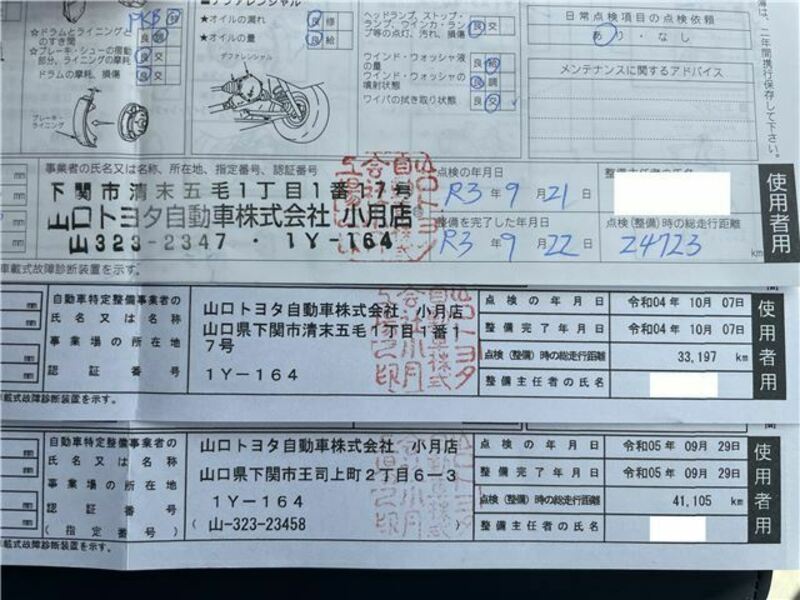 PKB
☆ドラムとライニングと
のすき間
良 調
☆ブレーキ・シューの摺動
部分、ライニングの摩耗
良 交
ドラムの摩耗、損傷
良 交
ブレーキ・
ライニング
★オイルの漏れ
良 修
★オイルの量
良 給
デファレンシャル
ヘッドランプ、ストップ・
ランプ、ウインカ・ラン
プ等の点灯、汚れ、損傷
良 交
ウインド・ウォッシャ液
の量
良 給
ウインド・ウォッシャの
噴射状態
良 調
ワイパの拭き取り状態
良 交
日常点検項目の点検依頼
あ り ・ な し
メンテナンスに関するアドバイス
は、二年間携行保存して下さい。
事業者の氏名又は名称、所在地、指定番号、認証番号
下関市清末五毛1丁目1番17号
山口トヨタ自動車株式会社 小月店
山323-2347 ・ 1Y-164
点検の年月日
R3年9月21日
整備を完了した年月日
R3年9月22日
整備主任者の氏名
点検(整備)時の総走行距離
24723 km
使用者用
車載式故障診断装置を示す。
自動車特定整備事業者の
氏名又は名称
事業場の所在地
認証番号
山口トヨタ自動車株式会社 小月店
山口県下関市清末五毛1丁目1番1
7号
1Y-164
点検の年月日 令和04年 10月 07日
整備完了年月日 令和04年 10月 07日
点検(整備)時の総走行距離 33,197 km
整備主任者の氏名
使用者用
車載式故障診断装置を示す。
自動車特定整備事業者の
氏名又は名称
事業場の所在地
認証番号
(指定番号)
山口トヨタ自動車株式会社 小月店
山口県下関市王司上町2丁目6-3
1Y-164
(山-323-23458 )
点検の年月日 令和05年 09月 29日
整備完了年月日 令和05年 09月 29日
点検(整備)時の総走行距離 41,105 km
整備主任者の氏名
使用者用
載式故障診断装置を示す。